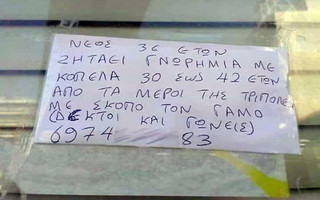 ΝΕΟΣ 36 ΕΤΩΝ
ΖΗΤΑΕΙ ΓΝΩΡΗΜΙΑ ΜΕ
ΚΟΠΕΛΑ 30 ΕΩΣ 42 ΕΤΩΝ
ΑΠΟ ΤΑ ΜΕΡΟΙ ΤΗΣ ΤΡΙΠΟΛΕ
ΜΕ ΣΚΟΠΟ ΤΟΝ ΓΑΜΟ
(ΔΕΚΤΟΙ ΚΑΙ ΓΩΝΕΙΣ)
6974 83